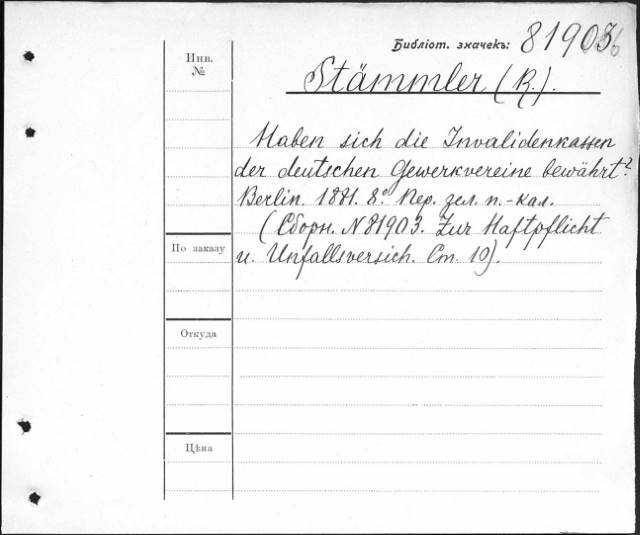 Библіот. значекъ: 81903.
Инв.
№
Stämmler (R.).
Haben sich die Invalidenkassen
der deutschen Gewerkvereine bewährt?
Berlin. 1881. 8.° Пер. зел. п.-кал.
(Сборн. N 81903. Zur Haftpflicht
u. Unfallsversich. Ст. 10).
По заказу
Откуда
Цѣна